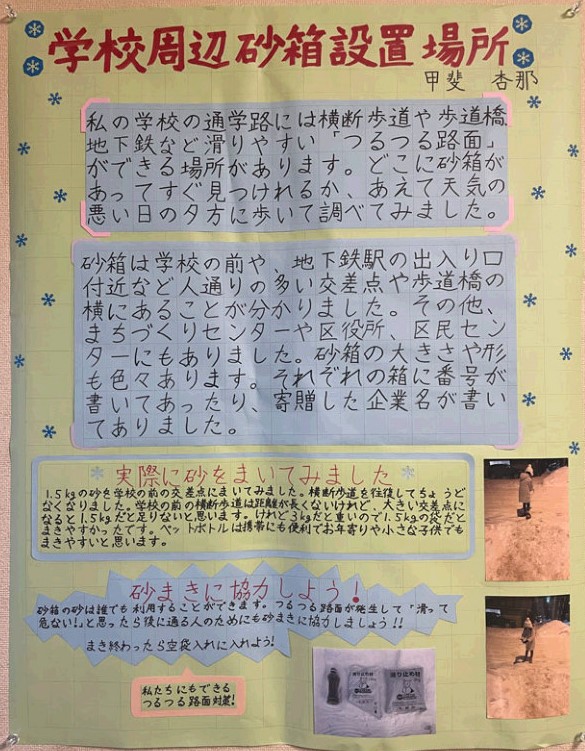 学校周辺砂箱設置場所
甲斐 杏那
私の学校の通学路には横断歩道や歩道橋、
地下鉄など滑りやすい「つるつる路面」
ができる場所があります。どこに砂箱が
あってすぐ見つけれるか、あえて天気の
悪い日の夕方に歩いて調べてみました。
砂箱は学校の前や、地下鉄駅の出入り口
付近など人通りの多い交差点や歩道橋の
横にあることが分かりました。その他、
まちづくりセンターや区役所、区民セン
ターにもありました。砂箱の大きさや形
も色々あります。それぞれの箱に番号が
書いてあったり、寄贈した企業名が書い
てありました。
実際に砂をまいてみました
1.5kgの砂を学校の前の交差点にまいてみました。横断歩道を往復してちょうど
なくなりました。学校の前の横断歩道は距離が長くないけれど、大きい交差点に
なると1.5kgだと足りないと思います。けれど3kgだと重いので1.5kgの袋だと
まきやすかったです。ペットボトルは携帯にも便利でお年寄りや小さな子供でも
まきやすいと思います。
砂まきに協力しよう!
砂箱の砂は誰でも利用することができます。つるつる路面が発生して「滑って
危ない!」と思ったら後に通る人のためにも砂まきに協力しましょう!!
まき終わったら空袋入れに入れよう!
私たちにもできる
つるつる路面対策!
滑り止め材
滑り止め材